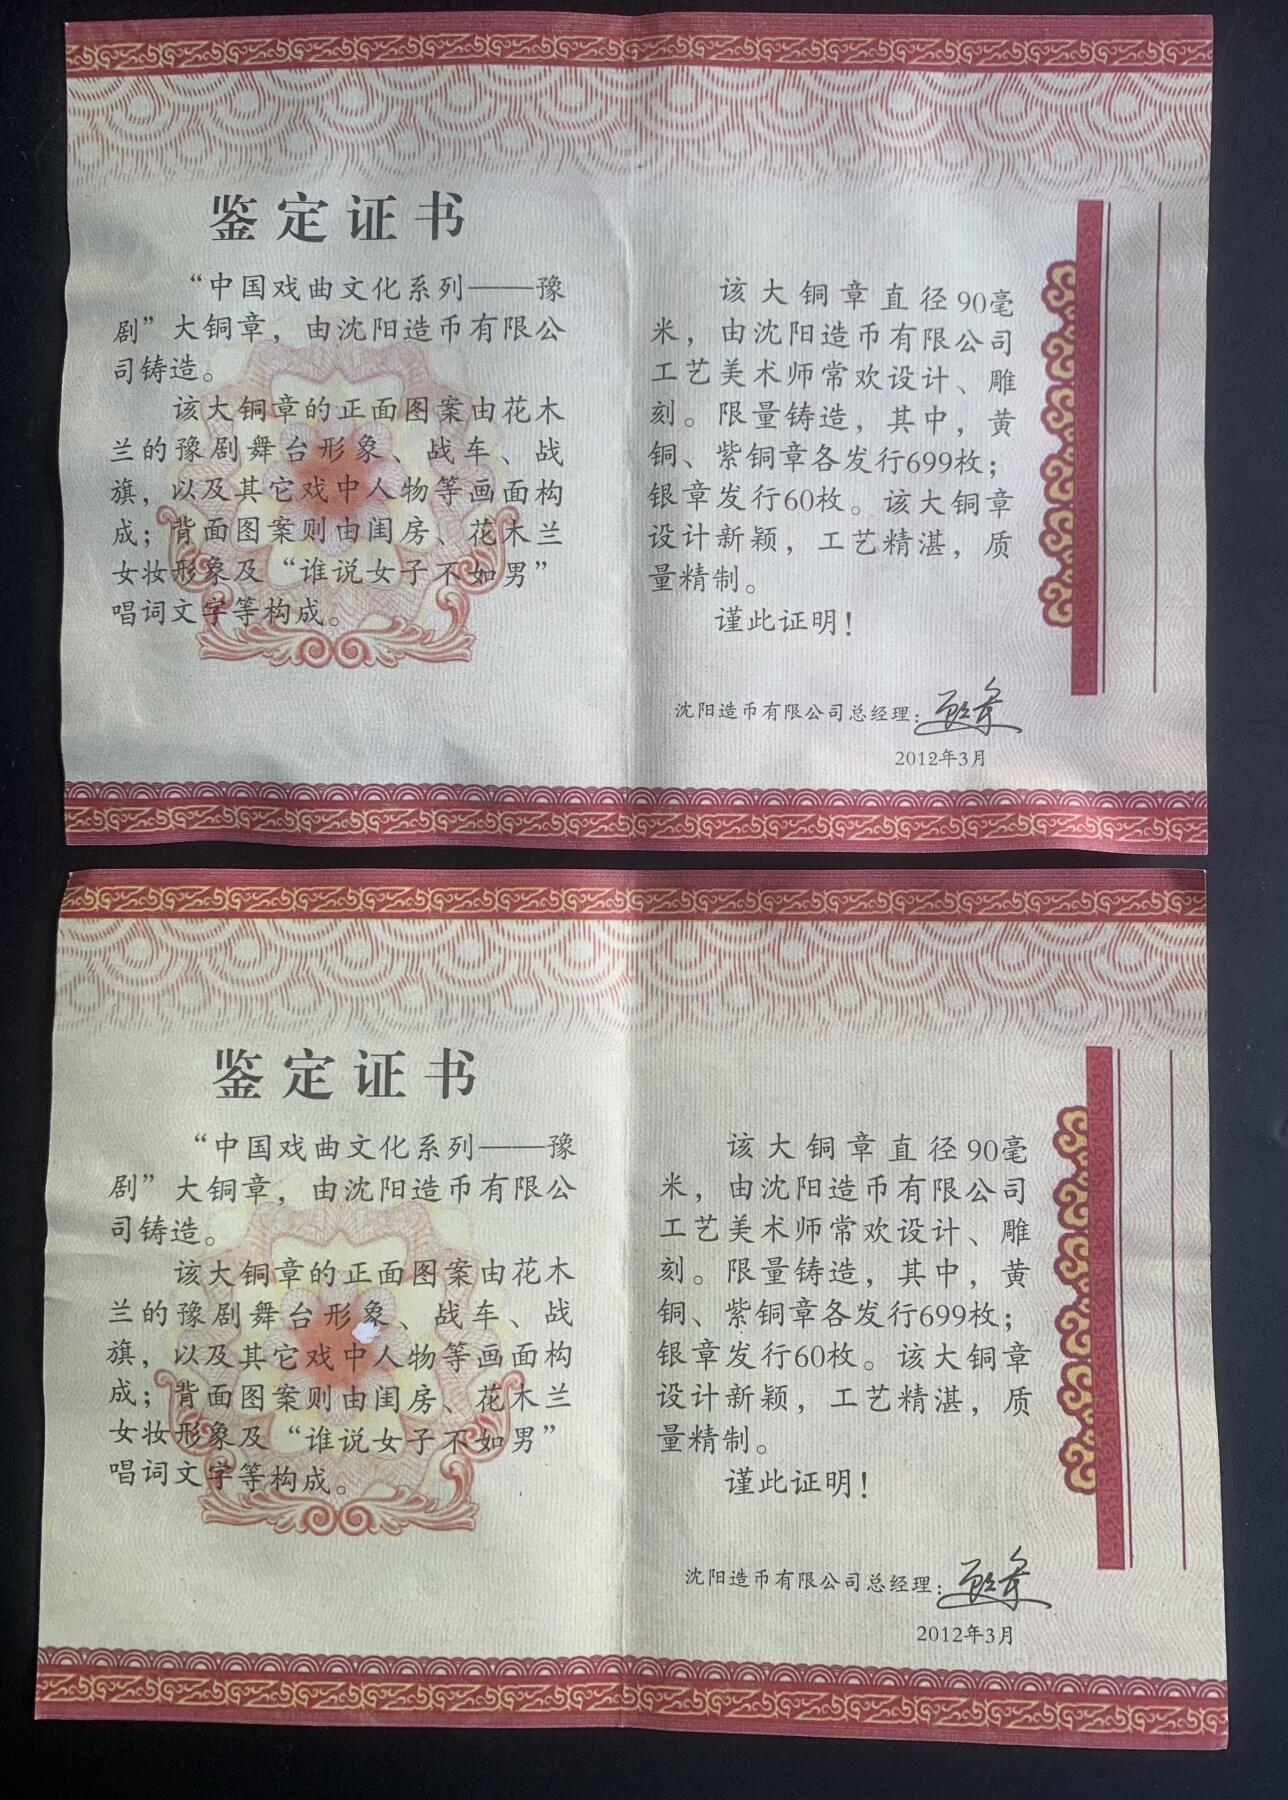 鉴定证书
“中国戏曲文化系列——豫
剧”大铜章，由沈阳造币有限公
司铸造。
该大铜章的正面图案由花木
兰的豫剧舞台形象、战车、战
旗，以及其它戏中人物等画面构
成；背面图案则由闺房、花木兰
女妆形象及“谁说女子不如男”
唱词文字等构成。
该大铜章直径90毫
米，由沈阳造币有限公司
工艺美术师常欢设计、雕
刻。限量铸造，其中，黄
铜、紫铜章各发行699枚；
银章发行60枚。该大铜章
设计新颖，工艺精湛，质
量精制。
谨此证明！
沈阳造币有限公司总经理：
2012年3月
鉴定证书
“中国戏曲文化系列——豫
剧”大铜章，由沈阳造币有限公
司铸造。
该大铜章的正面图案由花木
兰的豫剧舞台形象、战车、战
旗，以及其它戏中人物等画面构
成；背面图案则由闺房、花木兰
女妆形象及“谁说女子不如男”
唱词文字等构成。
该大铜章直径90毫
米，由沈阳造币有限公司
工艺美术师常欢设计、雕
刻。限量铸造，其中，黄
铜、紫铜章各发行699枚；
银章发行60枚。该大铜章
设计新颖，工艺精湛，质
量精制。
谨此证明！
沈阳造币有限公司总经理：
2012年3月